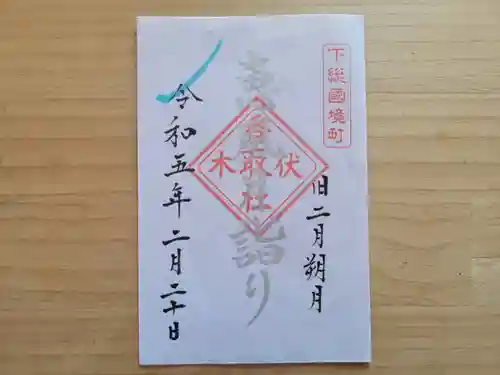 下総國境町
旧二月朔月
香取社
伏木
詣り
令和五年二月二十日